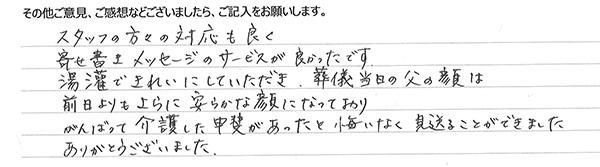 その他ご意見、ご感想などございましたら、ご記入をお願いします。
スタッフの方々の対応も良く
寄せ書きメッセージのサービスが良かったです
湯灌できれいにしていただき、葬儀当日の父の顔は
前日よりもさらに安らかな顔になっており
がんばって介護した甲斐があったと悔いなく見送ることができました
ありがとうございました。